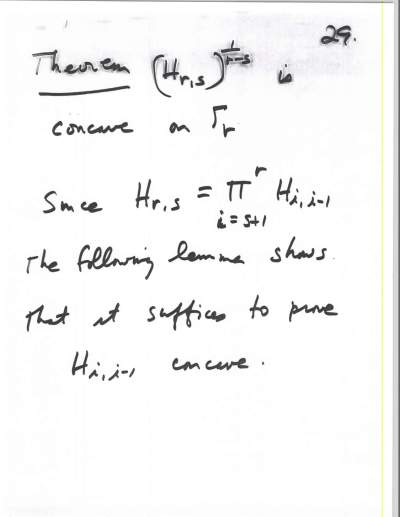 29.
Theorem (H_{r,s})^{\frac{1}{r-s}} is
concave on Γ_r
Since H_{r,s} = \prod_{i=s+1}^{r} H_{i,i-1}
The following lemma shows
that it suffices to prove
H_{i,i-1} concave.